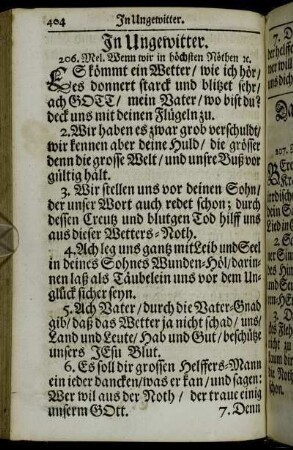 404 In Ungewitter.
In Ungewitter.
206. Mel. Wenn wir in höchsten Nöthen ꝛc.
ES kömmt ein Wetter / wie ich hör /
es donnert starck und blitzet sehr /
ach GOTT / mein Vater / wo bist du?
deck uns mit deinen Flügeln zu.
2. Wir haben es zwar grob verschuldt /
wir kennen aber deine Huld / die grösser
denn die grosse Welt / und unsre Buß vor
gültig hält.
3. Wir stellen uns vor deinen Sohn /
der unser Wort auch redet schon; durch
dessen Creutz und blutgen Tod hilff uns
aus dieser Wetters-Noth.
4. Ach leg uns gantz mit Leib und Seel
in deines Sohnes Wunden-Höl / darin-
nen laß als Täubelein uns vor dem Un-
glück sicher seyn.
5. Ach Vater / durch die Vater-Gnad
gib / daß das Wetter ja nicht schad / uns /
Land und Leute / Hab und Gut / beschütze
unsers JEsu Blut.
6. Es soll dir grossen Helffers-Mann
ein ieder dancken / was er kan / und sagen:
Wer wil aus der Noth / der traue einig
unserm GOtt. 7. Denn